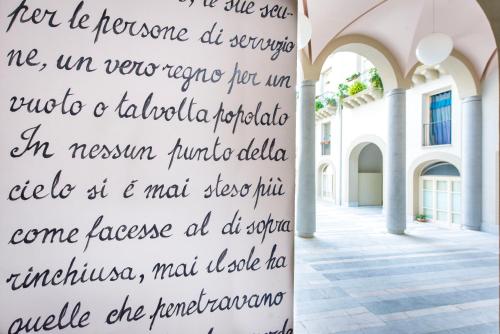 le sue scu-
per le persone di servizio
ne, un vero regno per un
vuoto o talvolta popolato
In nessun punto della
cielo si è mai steso più
come facesse al di sopra
rinchiusa, mai il sole ha
quelle che penetravano